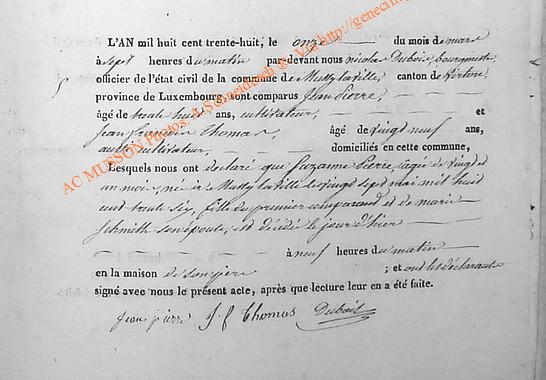 L'AN mil huit cent trente-huit, le onze du mois de mars
à sept heures du matin par-devant nous nicolas Dubois, bourgmestre
officier de l'état civil de la commune de Mussy la ville, canton de Virton,
province de Luxembourg, sont comparus Jean Pierre,
âgé de trente huit ans, cultivateur, et
jean francois Thomas, âgé de vingt neuf ans,
aussi cultivateur, domiciliés en cette commune,
Lesquels nous ont déclaré que Suzanne Pierre, agée de vingt et
un mois, née à Mussy la ville le vingt sept mai mil huit
cent trente six, fille du premier comparand et de marie
schmith son épouse, est décédé le jour d'hier
à neuf heures du matin
en la maison de son père ; et ont les déclarants
signé avec nous le présent acte, après que lecture leur en a été faite.
jean pierre J. f Thomas Dubois
AC MUSSON Photos: Schneidesch ®. Via http://genecri